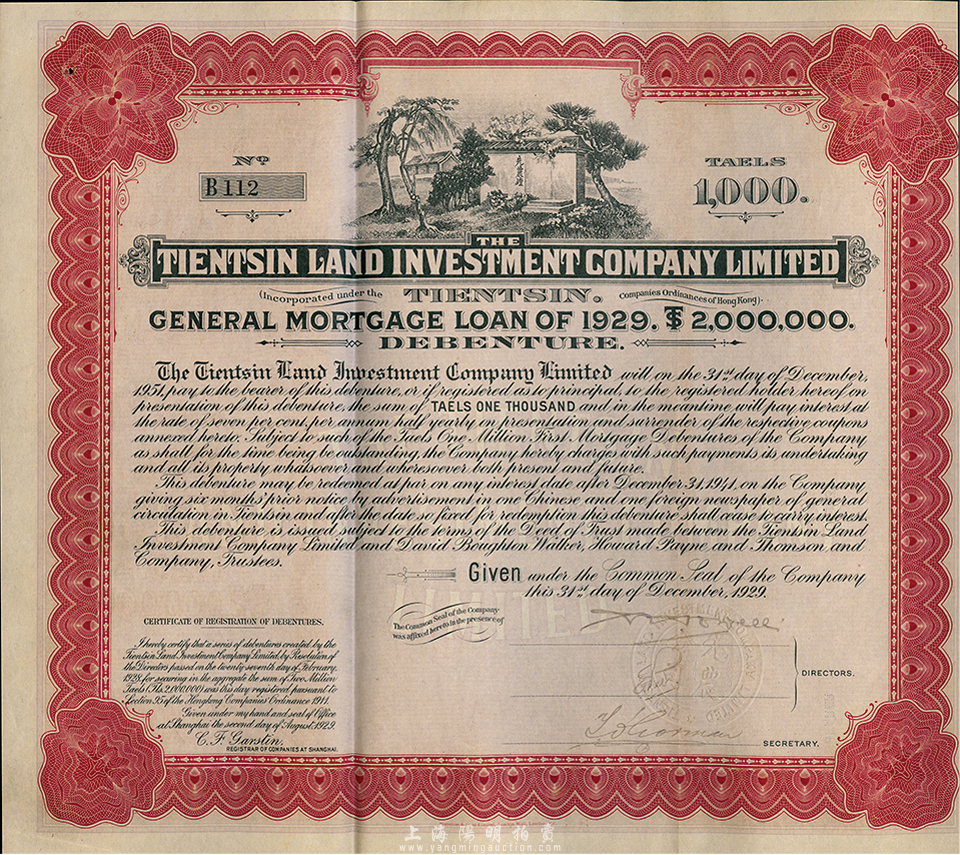 No
B 112
TAELS
1,000.
THE
TIENTSIN LAND INVESTMENT COMPANY LIMITED
(Incorporated under the TIENTSIN. Companies Ordinances of Hong Kong).
GENERAL MORTGAGE LOAN OF 1929. T$ 2,000,000.
DEBENTURE.
The Tientsin Land Investment Company Limited will on the 31st day of December,
1951, pay to the bearer of this debenture, or if registered as to principal, to the registered holder hereof on
presentation of this debenture, the sum of TAELS ONE THOUSAND and in the meantime will pay interest at
the rate of seven per cent, per annum half yearly on presentation and surrender of the respective coupons
annexed hereto: Subject to such of the Taels One Million First Mortgage Debentures of the Company
as shall for the time being be outstanding, the Company hereby charges with such payments its undertaking
and all its property whatsoever and wheresoever both present and future.
This debenture may be redeemed at par on any interest date after December 31 1941, on the Company
giving six months' prior notice by advertisement in one Chinese and one foreign newspaper of general
circulation in Tientsin and after the date so fixed for redemption this debenture shall cease to carry interest.
This debenture is issued subject to the terms of the Deed of Trust made between the Tientsin Land
Investment Company Limited and David Boughton Walker, Howard Payne, and Thomson and
Company, Trustees.
Given under the Common Seal of the Company
this 31st day of December, 1929.
The Common Seal of the Company
was affixed hereto in the presence of
LIMITED
DIRECTORS.
SECRETARY.
CERTIFICATE OF REGISTRATION OF DEBENTURES.
I hereby certify that a series of debentures created by the
Tientsin Land Investment Company Limited, by Resolution of
the Directors passed on the twenty seventh day of February,
1928, for securing in the aggregate the sum of Two Million
Taels (Tls. 2,000,000) was this day registered pursuant to
Section 95 of the Hongkong Companies Ordinance 1911.
Given under my hand and seal of Office
at Shanghai the second day of August, 1929.
C. F. Garstin,
REGISTRAR OF COMPANIES AT SHANGHAI.
上海陽明拍賣
www.yangmingauction.com